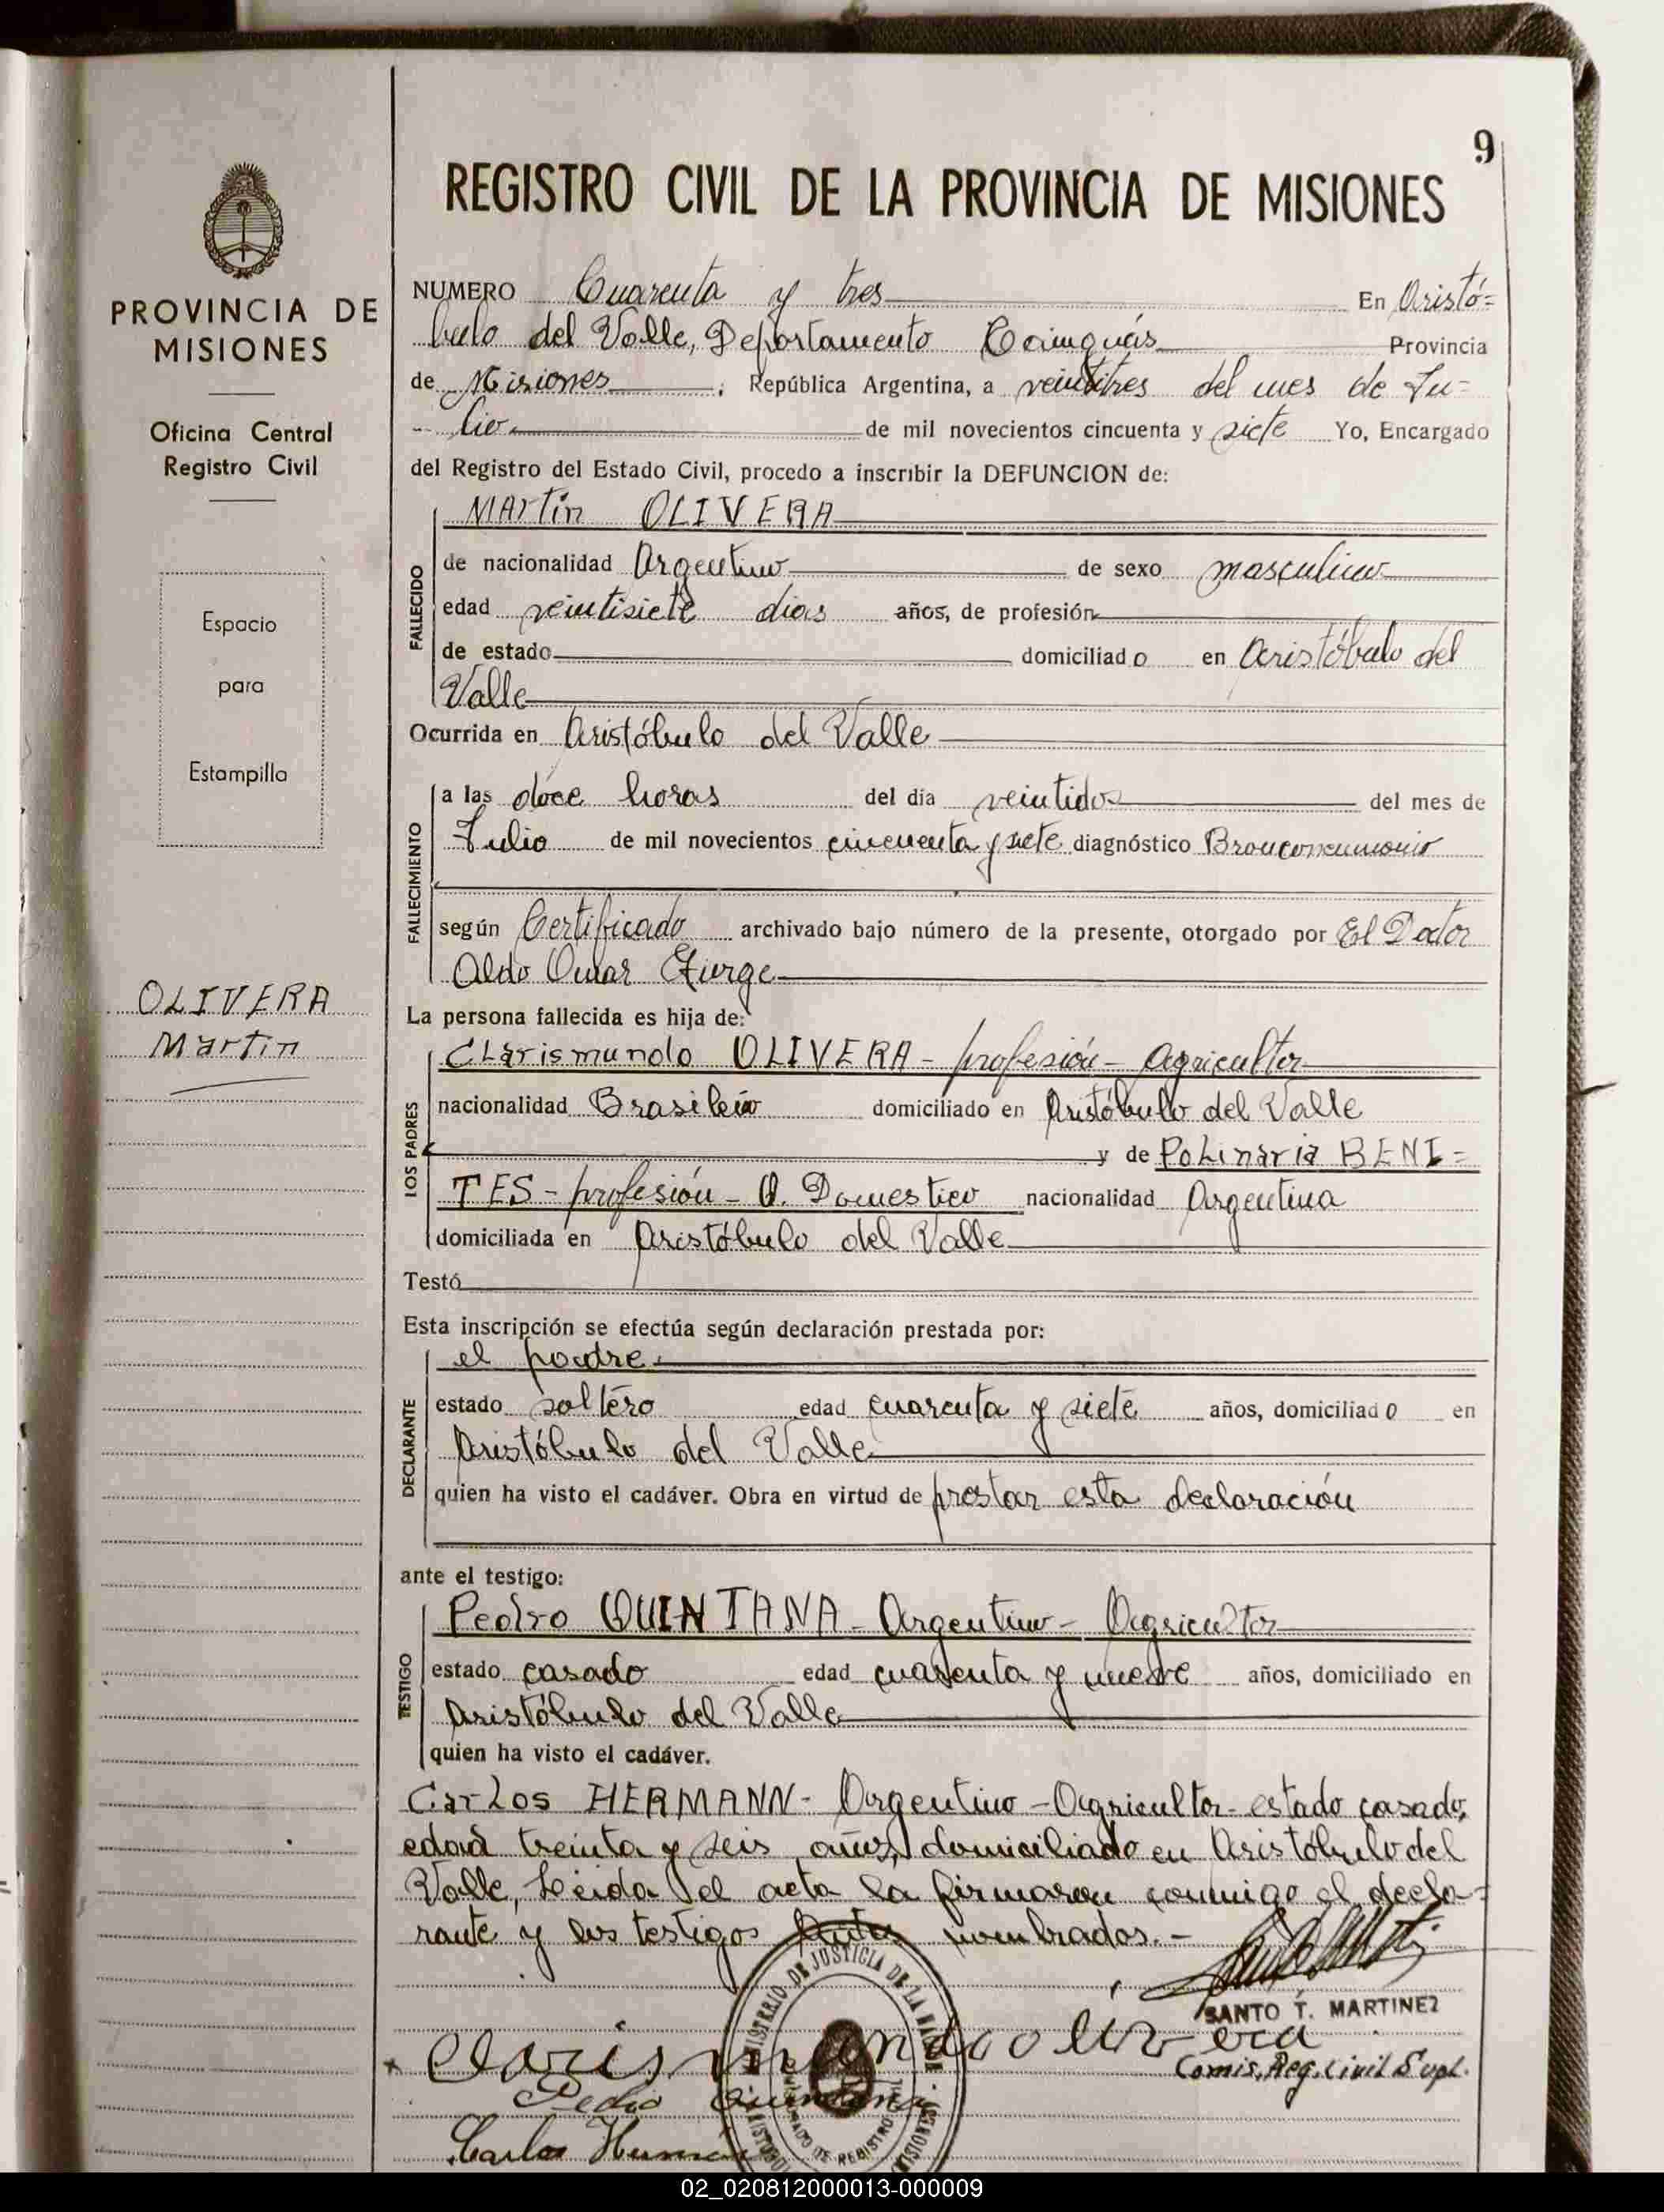 9
REGISTRO CIVIL DE LA PROVINCIA DE MISIONES
PROVINCIA DE
MISIONES
Oficina Central
Registro Civil
Espacio
para
Estampilla
OLIVERA
Martin
NUMERO Cuarenta y tres En Aristó=
bulo del Valle, Departamento Cainguás Provincia
de Misiones, República Argentina, a veintitres del mes de Ju=
lio de mil novecientos cincuenta y siete Yo, Encargado
del Registro del Estado Civil, procedo a inscribir la DEFUNCION de:
FALLECIDO
Martin OLIVERA
de nacionalidad Argentino de sexo masculino
edad veintisiete dias años, de profesión
de estado domiciliado en Aristóbulo del
Valle
Ocurrida en Aristóbulo del Valle
FALLECIMIENTO
a las doce horas del dia veintidos del mes de
Julio de mil novecientos cincuenta y siete diagnóstico Bronconeumonio
según Certificado archivado bajo número de la presente, otorgado por El Doctor
Aldo Omar
La persona fallecida es hija de:
LOS PADRES
Clarismundo OLIVERA - profesión - Agricultor
nacionalidad Brasilero domiciliado en Aristóbulo del Valle
y de Polinaria BENI=
TES - profesión - Q. Domestico nacionalidad Argentina
domiciliada en Aristóbulo del Valle
Testó
Esta inscripción se efectúa según declaración prestada por:
DECLARANTE
el padre.
estado soltero edad cuarenta y siete años, domiciliado en
Aristóbulo del Valle
quien ha visto el cadáver. Obra en virtud de prestar esta declaración
ante el testigo:
TESTIGO
Pedro QUINTANA - Argentino - Agricultor
estado casado edad cuarenta y nueve años, domiciliado en
Aristóbulo del Valle
quien ha visto el cadáver.
Carlos HERMANN - Argentino - Agricultor - estado casado,
edad treinta y seis años, domiciliado en Aristóbulo del
Valle, Leida el acta la firmaron conmigo el decla=
rante y los testigos Antes nombrados. -
SANTO T. MARTINEZ
Comis. Reg. Civil Supl.
x Clarismundo olivera
Pedro Quintana
Carlos Hermán
MINISTERIO DE JUSTICIA DE LA
MISIONES
02_020812000013-000009